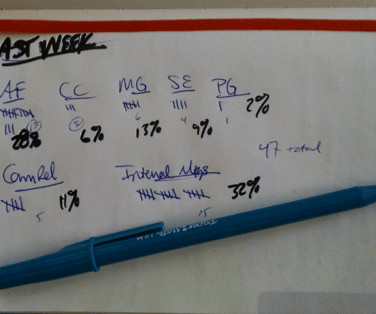 AST WEEK
AF CC MG SE PG
13 3 6 4 1
28% 6% 13% 9% 2%
47 total
ComRel Internal Mtgs
5 11% 15 32%